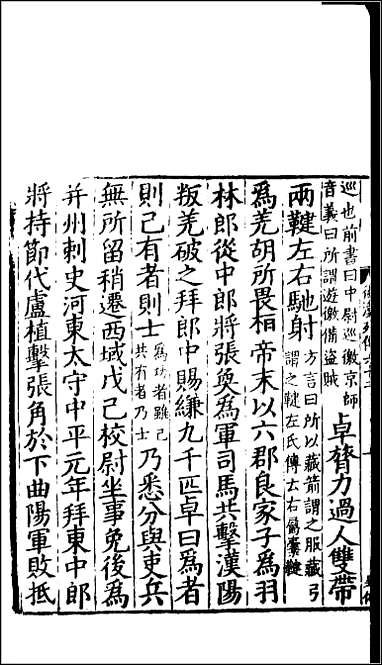 巡也前書曰中尉巡徼京師
音義曰所謂遊徼備盜賊
卓膂力過人雙帶
兩鞬左右馳射
方言曰所以藏箭謂之服藏弓
謂之鞬左氏傳云右屬櫜鞬
爲羌胡所畏桓帝末以六郡良家子爲羽
林郎從中郎將張奐爲軍司馬共擊漢陽
叛羌破之拜郎中賜縑九千匹卓曰爲者
則己有者則士
爲功者雖己
共有者乃士
乃悉分與吏兵
無所留稍遷西域戊己校尉坐事免後爲
并州刺史河東太守中平元年拜東中郎
將持節代盧植擊張角於下曲陽軍敗抵